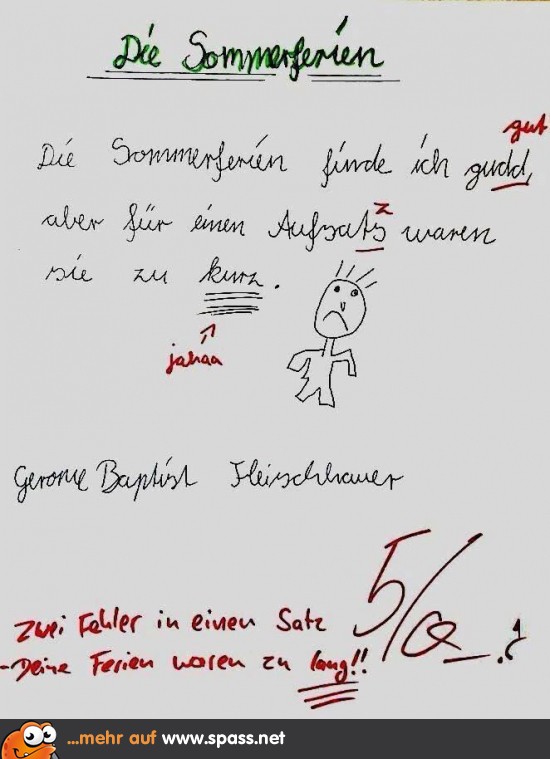 Die Sommerferien
gut
Die Sommerferien finde ich gudd,
z
aber für einen Aufsats waren
sie zu kurz.
jahaa
Gerome Baptist Fleischhauer
5/
Zwei Fehler in einen Satz
-Deine Ferien waren zu lang!!
...mehr auf www.spass.net